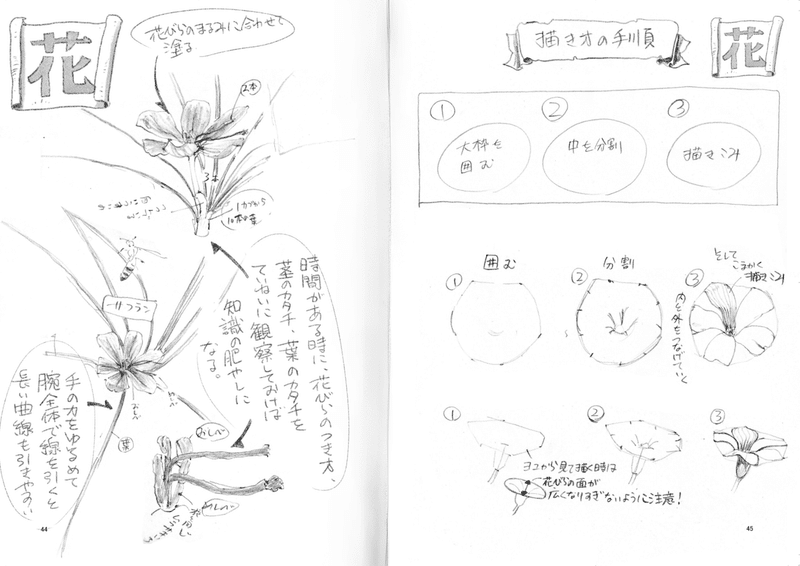 花
花びらのまるみに合わせて
塗る
2本
3本
1カブから
10本の葉
サフラン
時間がある時に、花びらのつき方、
茎のカタチ、葉のカタチを
ていねいに観察しておけば
知識の肥やしに
なる。
手の力をゆるめて
腕全体で線を引くと
長い曲線も引きやすい
葉
めしべ
おしべ
44
描き方の手順
花
①
②
③
大枠を
囲む
中を分割
描きこみ
囲む
分割
そして
こまかく
描きこみ
①
②
③
内と外をつなげていく
①
②
③
ヨコから見て描く時は
花びらの面が
広くなりすぎないように注意!
45